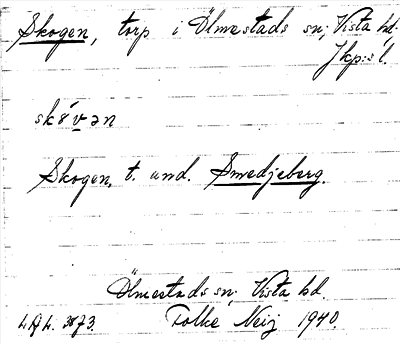 Skogen, torp i Ölmestads sn; Vista hd.
Jkp:s l.
skövən
Skogen, t. und. Smedjeberg.
Ölmestads sn, Vista hd.
Folke Neij 1940.